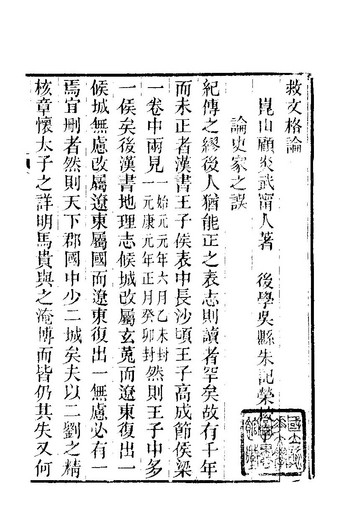 救文格論
崑山顧炎武甯人著　後學吳縣朱記榮
論史家之誤
紀傳之繆後人猶能正之表志則讀者罕矣故有千年
而未正者漢書王子侯表中長沙頃王子高成節侯梁
一卷中兩見一始元元年六月乙未封一元康元年正月癸卯封然則王子中多
一侯矣後漢書地理志候城改屬玄菟而遼東復出一
候城無慮改屬遼東屬國而遼東復出一無慮必有一
焉宜刪者然則天下郡國中少二城矣夫以二劉之精
核章懷太子之詳明馬貴與之淹博而皆仍其失又何